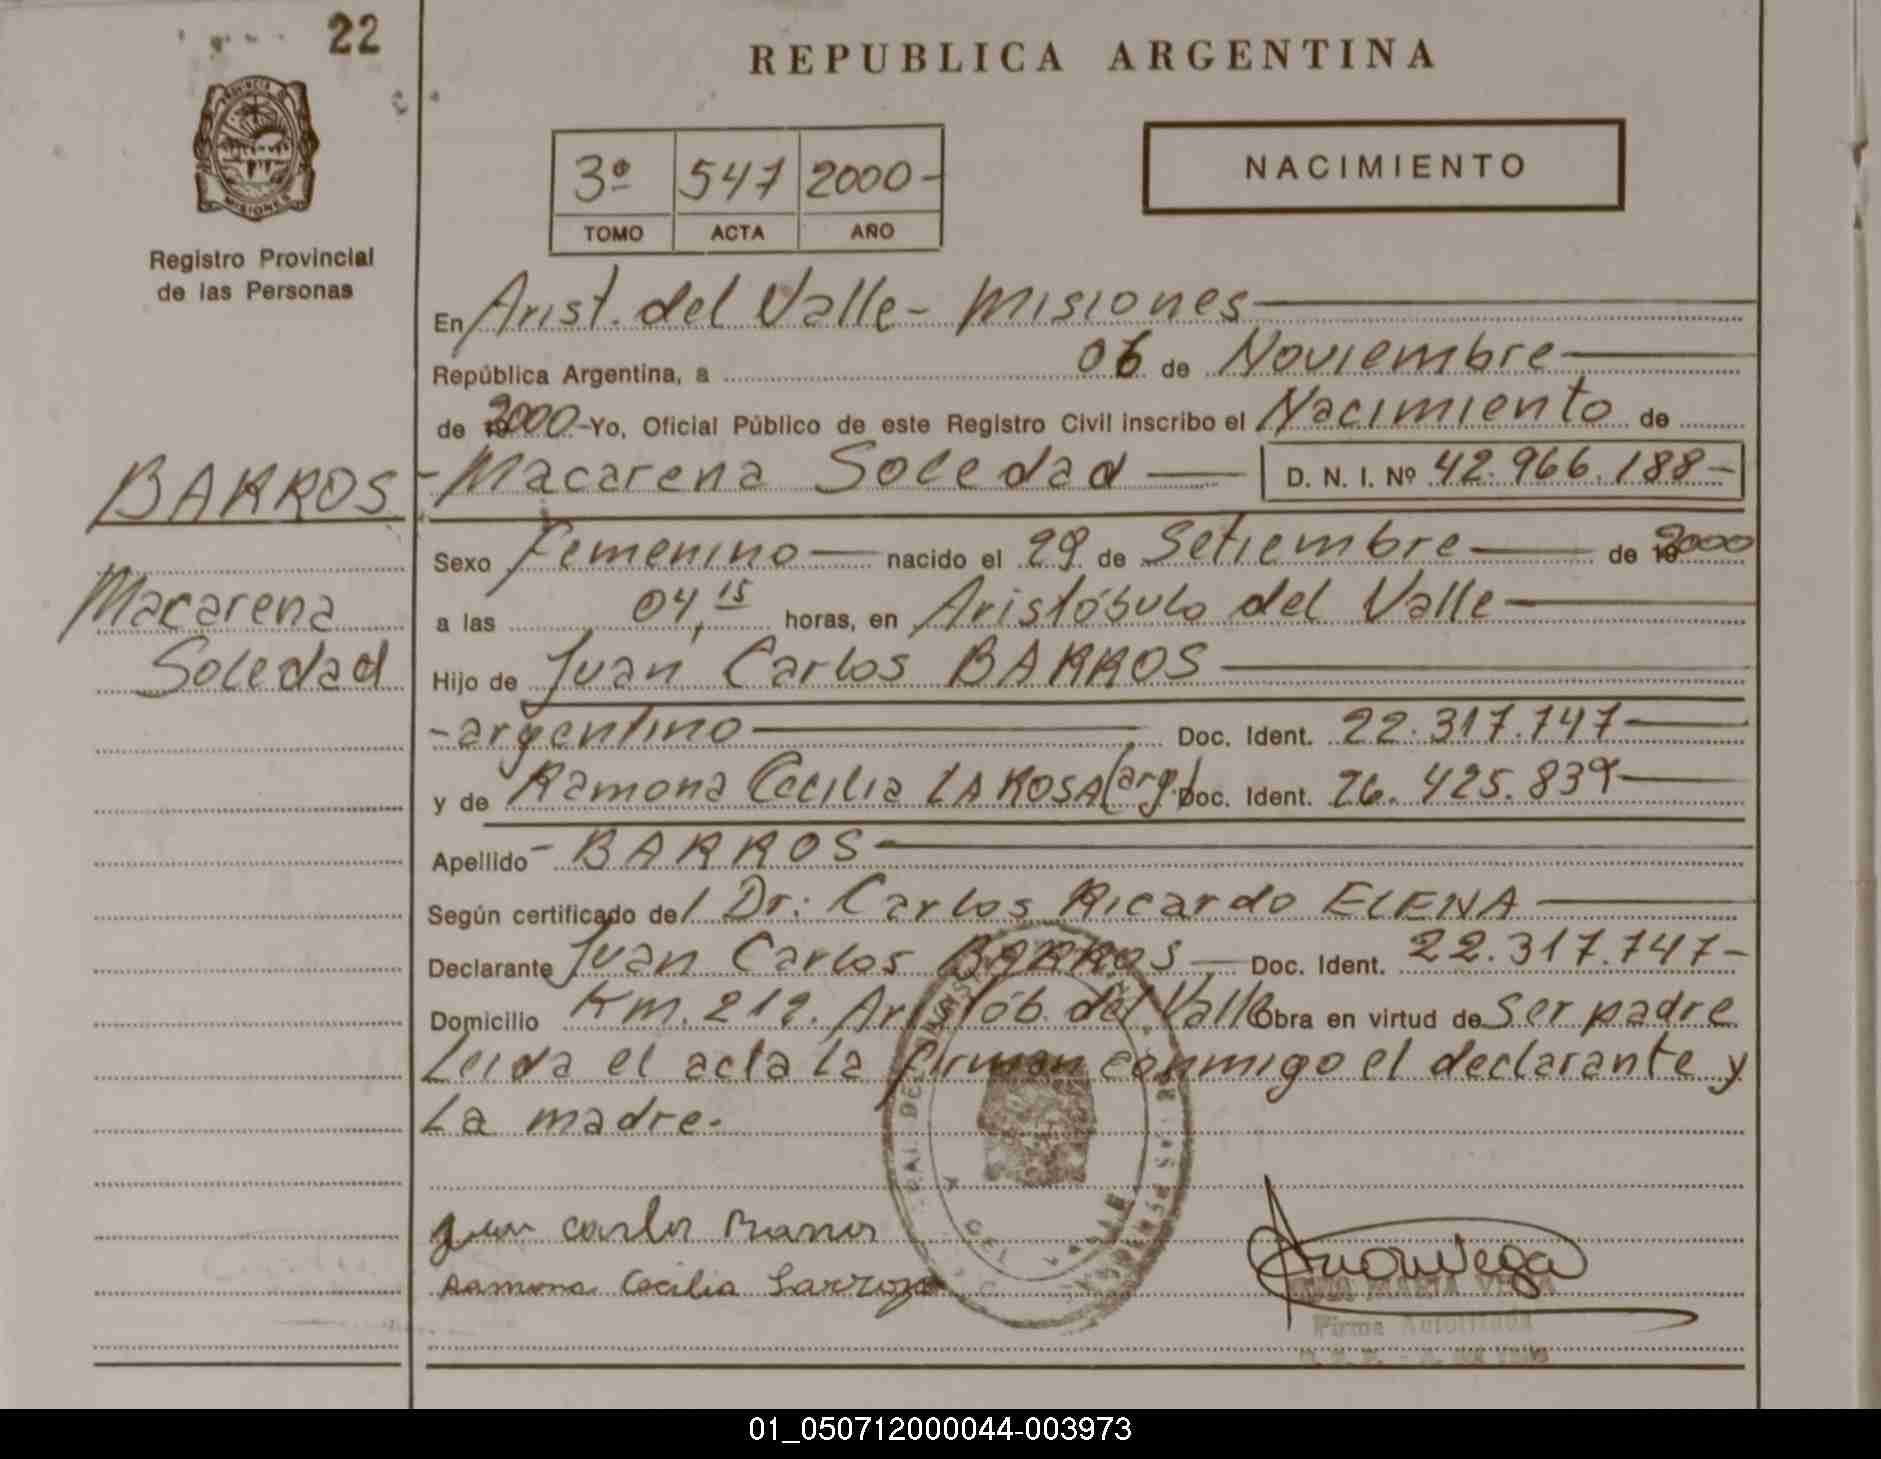 22
REPUBLICA ARGENTINA
PROVINCIA DE
MISIONES
Registro Provincial
de las Personas
3º 547 2000-
TOMO ACTA AÑO
NACIMIENTO
En Arist. del Valle - Misiones
República Argentina, a 06 de Noviembre
de 2000 - Yo, Oficial Público de este Registro Civil inscribo el Nacimiento de
BARROS - Macarena Soledad D. N. I. Nº 42.966.188-
Sexo Femenino nacido el 29 de Setiembre de 2000
Macarena
a las 04,15 horas, en Aristóbulo del Valle
Soledad
Hijo de Juan Carlos BARROS
- argentino Doc. Ident. 22.317.747
y de Ramona Cecilia LAROSA (arg.) Doc. Ident. 26.425.839
Apellido - BARROS
Según certificado del Dr: Carlos Ricardo ELENA
Declarante Juan Carlos BARROS Doc. Ident. 22.317.747-
Domicilio Km. 219. Aristób. del Valle Obra en virtud de Ser padre
Leida el acta la firman conmigo el declarante y
La madre.
Juan Carlos Barros
Ramona Cecilia Larroza
MARIA VEGA
Firma Autorizada
01_050712000044-003973